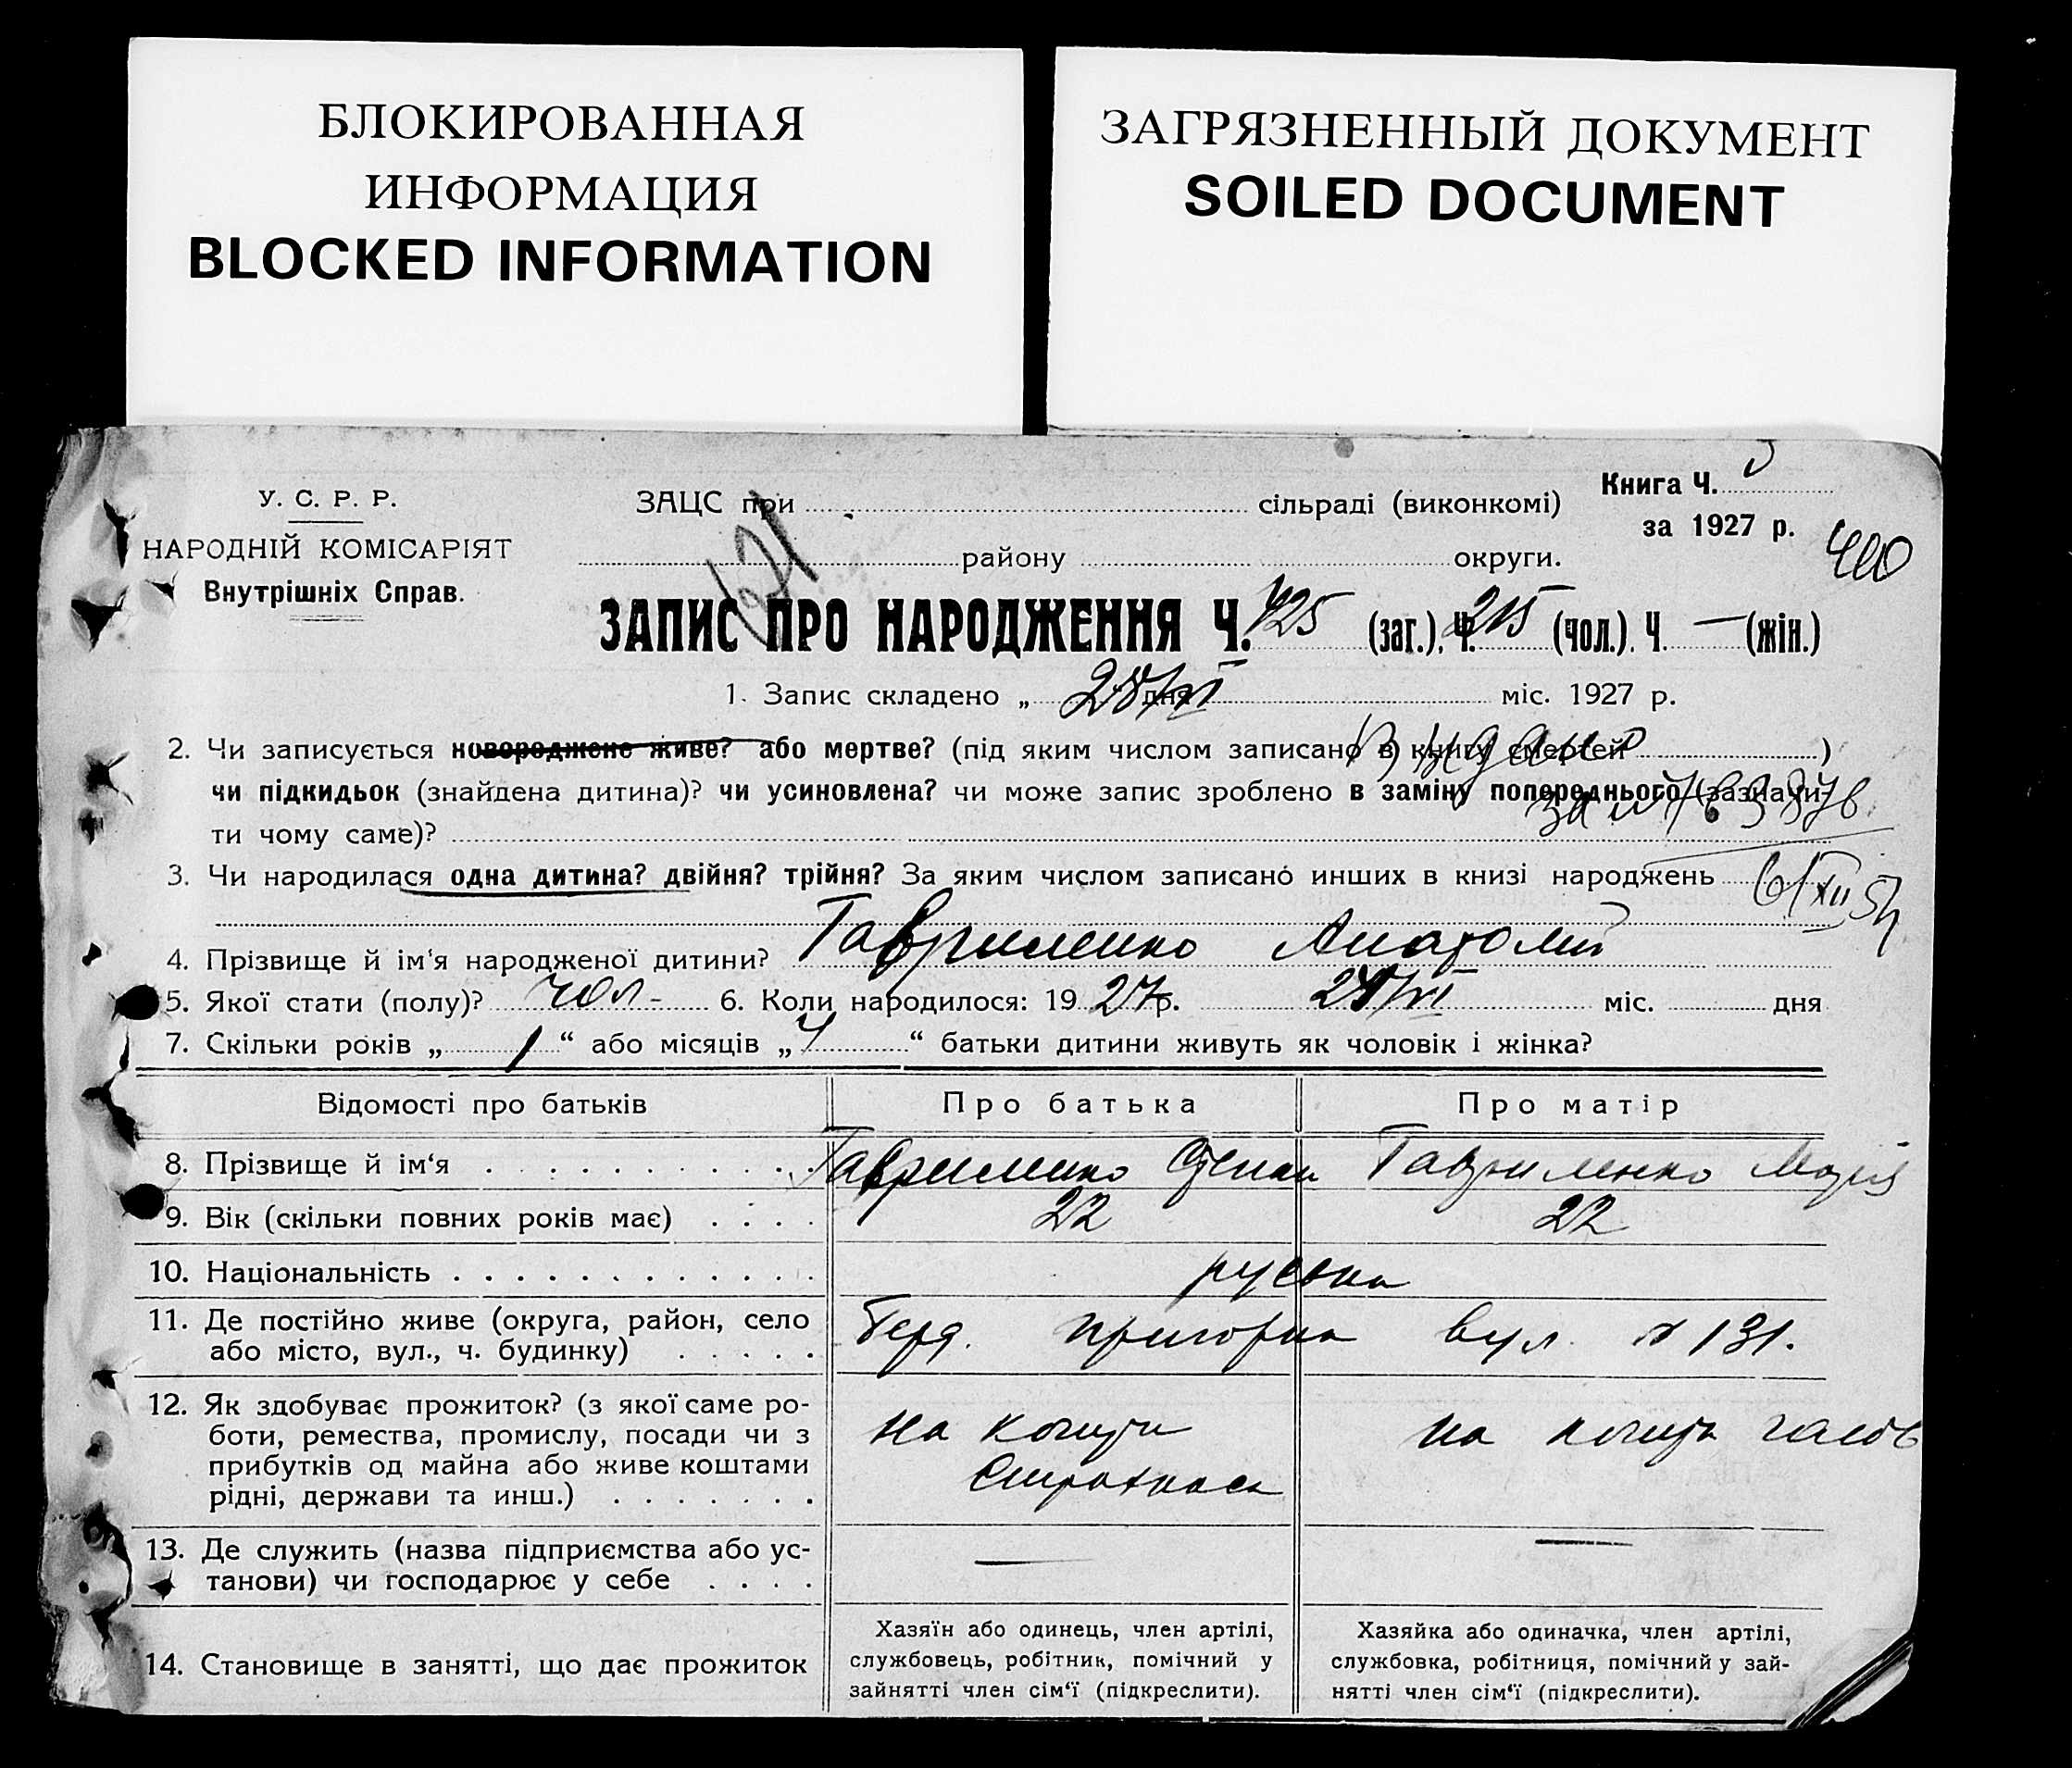 БЛОКИРОВАННАЯ
ИНФОРМАЦИЯ
BLOCKED INFORMATION
ЗАГРЯЗНЕННЫЙ ДОКУМЕНТ
SOILED DOCUMENT
У. С. Р. Р.
НАРОДНІЙ КОМІСАРІЯТ
Внутрішніх Справ.
ЗАЦС при сільраді (виконкомі)
району округи.
Книга Ч.
за 1927 р.
400
621
ЗАПИС ПРО НАРОДЖЕННЯ Ч. 425 (заг.), Ч. 215 (чол.). Ч. — (жін.)
1. Запис складено „ 28/VI дня міс. 1927 р.
2. Чи записується новороджене живе? або мертве? (під яким числом записано в книгу смертей )
чи підкидьок (знайдена дитина)? чи усиновлена? чи може запис зроблено в заміну попереднього (зазначи-
ти чому саме)?
3. Чи народилася одна дитина? двійня? трійня? За яким числом записано инших в книзі народжень
4. Прізвище й ім'я народженої дитини? Гавриленко Анатолий
5. Якої стати (полу)? чол- 6. Коли народилося: 19 27 р. міс. дня
7. Скільки років „ 1 “ або місяців „ 4 “ батьки дитини живуть як чоловік і жінка?
Відомості про батьків Про батька Про матір
8. Прізвище й ім'я Гавриленко Степан Гавриленко Марія
9. Вік (скільки повних років має) 22 22
10. Національність руська
11. Де постійно живе (округа, район, село
або місто, вул., ч. будинку)
Берд. пригорна вул. № 131.
12. Як здобуває прожиток? (з якої саме ро-
боти, ремества, промислу, посади чи з
прибутків од майна або живе коштами
рідні, держави та инш.)
на кошти
Страхкаси
на кошти
13. Де служить (назва підприємства або ус-
танови) чи господарює у себе
—
—
14. Становище в занятті, що дає прожиток
Хазяїн або одинець, член артілі,
службовець, робітник, помічний у
зайнятті член сім'ї (підкреслити).
Хазяйка або одиначка, член артілі,
службовка, робітниця, помічний у зай-
нятті член сім'ї (підкреслити).